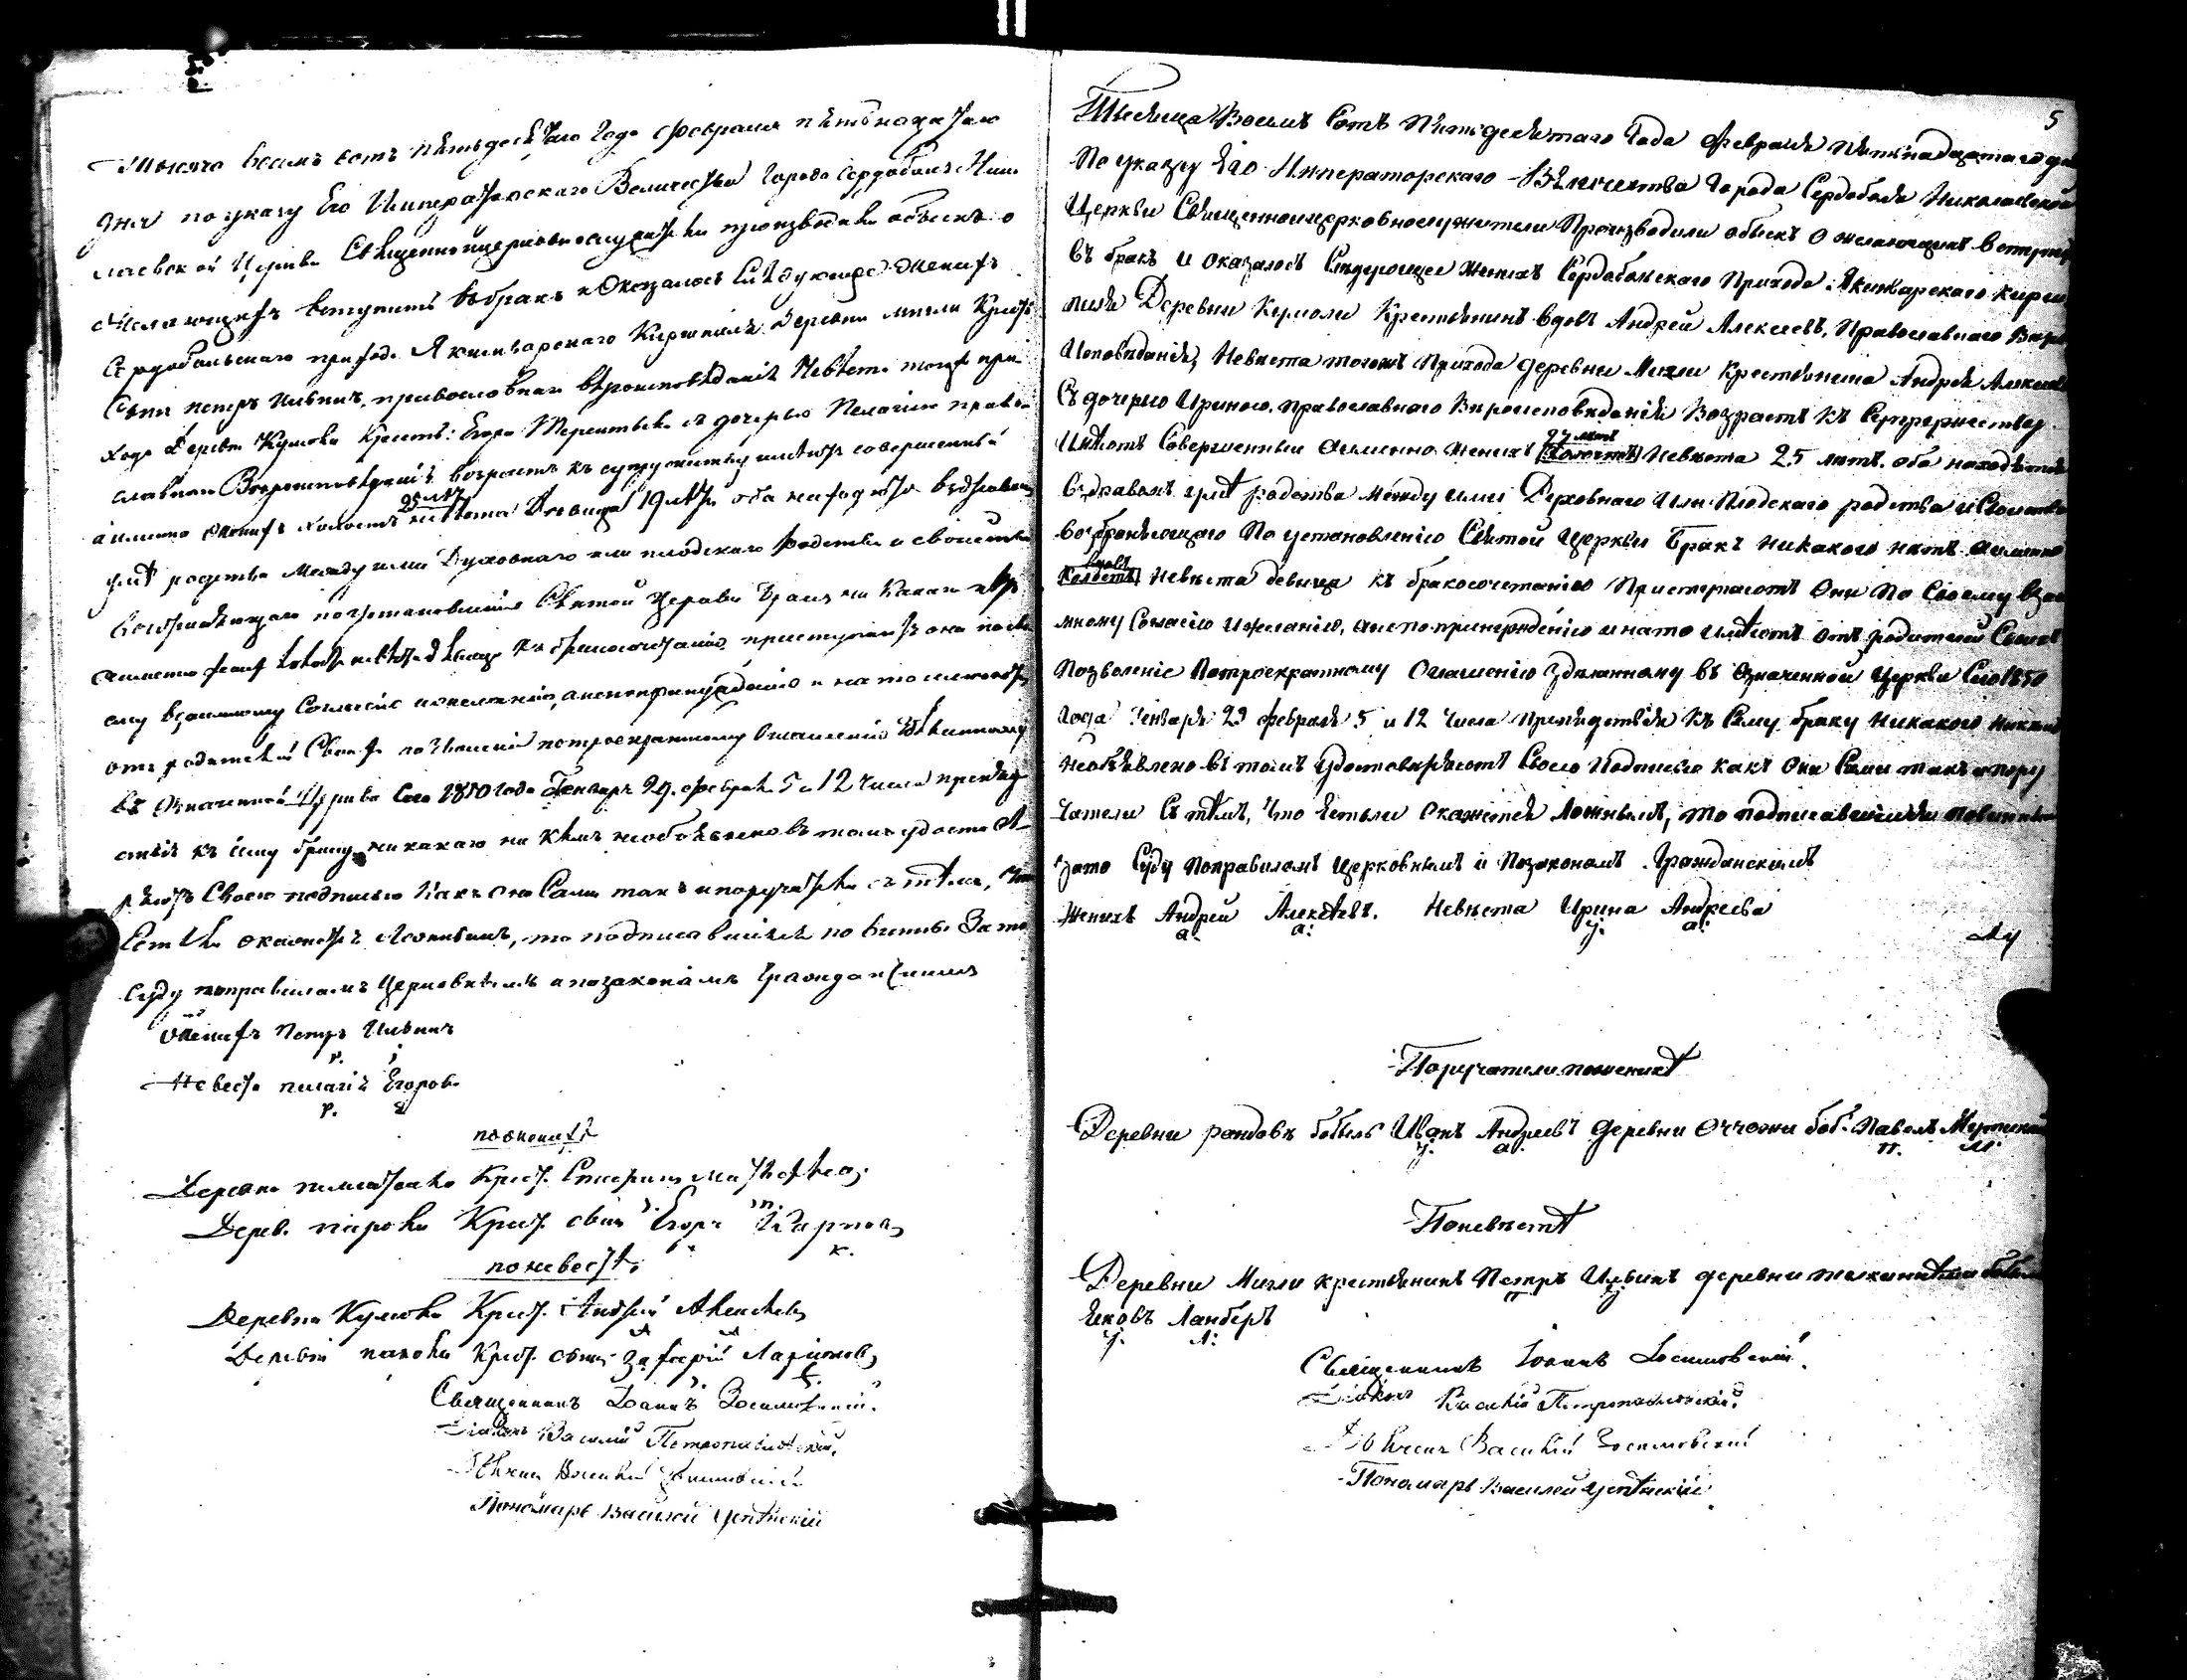 Тысяча восемъ сотъ пятьдесятаго Года февраля пятьнадцатаго
дня по указу Его Императорскаго Величества города Сердоболя Нико
лаевской Церкви Священноицерковнослужители производили обыскъ о
желающихъ вступить въ бракъ и Оказалось Слѣдующее Женихъ
Сердобольскаго прихода Якимварскаго Кирхшпиля Деревни мигли Крест
Сынъ петръ Ильинъ, православнаго вѣроисповѣданія Невѣста тогожъ при
хода Деревни Крест: Егора Терентьева съ дочерью Пелагіею право
славнаго Вѣроисповѣданія возрастъ къ супружеству имѣютъ совершенный
а именно женихъ холостъ 25 лѣтъ невѣста Девица 19 лѣтъ оба находятся въ здравомъ
умѣ родства между ими Духовнаго или плодскаго родства и свойства
возбраняющаго по установленію Святой Церкви бракъ никакаго нѣтъ
къ бракосочетанію приступаютъ они по сво
ему взаимному Согласію и желанію, а не по принужденію и на то имѣютъ
отъ родителей Своихъ позволеніе по троекратному Оглашенію здѣланному
въ Означенной Церкви Сего 1850 года Генваря 29. февраля 5 и 12 числа препят
ствія къ сему браку никакаго ни кѣмъ необъявлено въ томъ удостовѣ
ряютъ Своею подписью Какъ они Сами такъ и поручатели съ тѣмъ, что
Естьли окажется Ложнымъ, то подписавшіися повинны За то
Суду по правиламъ Церковнымъ и по законамъ Гражданскимъ
Женихъ Петръ Ильинъ
Невеста пелагія Егорова
по женихѣ
Деревни Крест.
Дерев. Крест. сынъ Егоръ Карповъ
К.
по невестѣ
Деревни Крест. Андрей Алексѣевъ
Деревни Крест. сынъ Захарій Ларіоновъ
Священникъ Іоаннъ Зосимовскій.
Діаконъ Василій Петропавловскій.
Дьячекъ Василій Зосимовскій
Пономарь Василей Успѣнскій
5
Тысяца Восемъ Сотъ Пятьдесятаго Года Февраля пятьнадцатаго дня
По указу Его Императорскаго Величества Города Сердоболя Николаевской
Церкви Священноицерковнослужители Производили обыскъ о желающихъ вступить
въ бракъ и оказалось Слѣдующее Женихъ Сердобольскаго Прихода Якимварскаго кирхш
пиля Деревни Кумоли Крестьянинъ вдовъ Андрей Алексѣевъ, Православнаго Вѣро
Исповѣданія, Невѣста тогожъ Прихода деревни Мигли Крестьянина Андрея Алексѣева
Съ дочерью Ириною, православнаго Вѣроисповѣданія Возрастъ къ Супружеству
Имѣютъ Совершенный а именно женихъ Холостъ лѣтъ Невѣста 25 лѣтъ. оба находятся
въ здравомъ умѣ родства между ими Духовнаго или Плодскаго родства и Свойства
возбраняющаго По установленію Святой Церкви Бракъ никакого нѣтъ а именно
вдовъ
Холостъ Невѣста девица къ бракосочетанію Приступаютъ Они По Своему взаи
мному Согласію и желанію, а не по принужденію и на то имѣютъ отъ родителей Своихъ
Позволеніе По троекратному Оглашенію здѣланному въ Означенной Церкви Сего 1850
Года Генваря 29 февраля 5 и 12 числа препядствія къ Сему браку никакого никѣмъ
необъявлено въ томъ удостовѣряютъ Своею Подписью какъ Они Сами такъ и пору
чатели Съ тѣмъ, что естьли окажется Ложнымъ, то подписавшіися повинны
зато Суду по правиламъ Церковнымъ и По законамъ Гражданскимъ
Женихъ Андрей Алексѣевъ. Невѣста Ирина Андреева
а. а: У. а:
Поручатели по женихѣ
Деревни рандовъ бобыль Иванъ Андреевъ деревни боб. Павелъ
У. а. П. М
По невѣстѣ
Деревни Мигли крестьянинъ Петръ Ильинъ деревни
Яковъ Ланберъ
У. Л:
Священникъ Іоаннъ Зосимовскій.
Діаконъ Василій Петропавловскій.
Дьячекъ Василій Зосимовскій
Пономарь Василей Успѣнскій